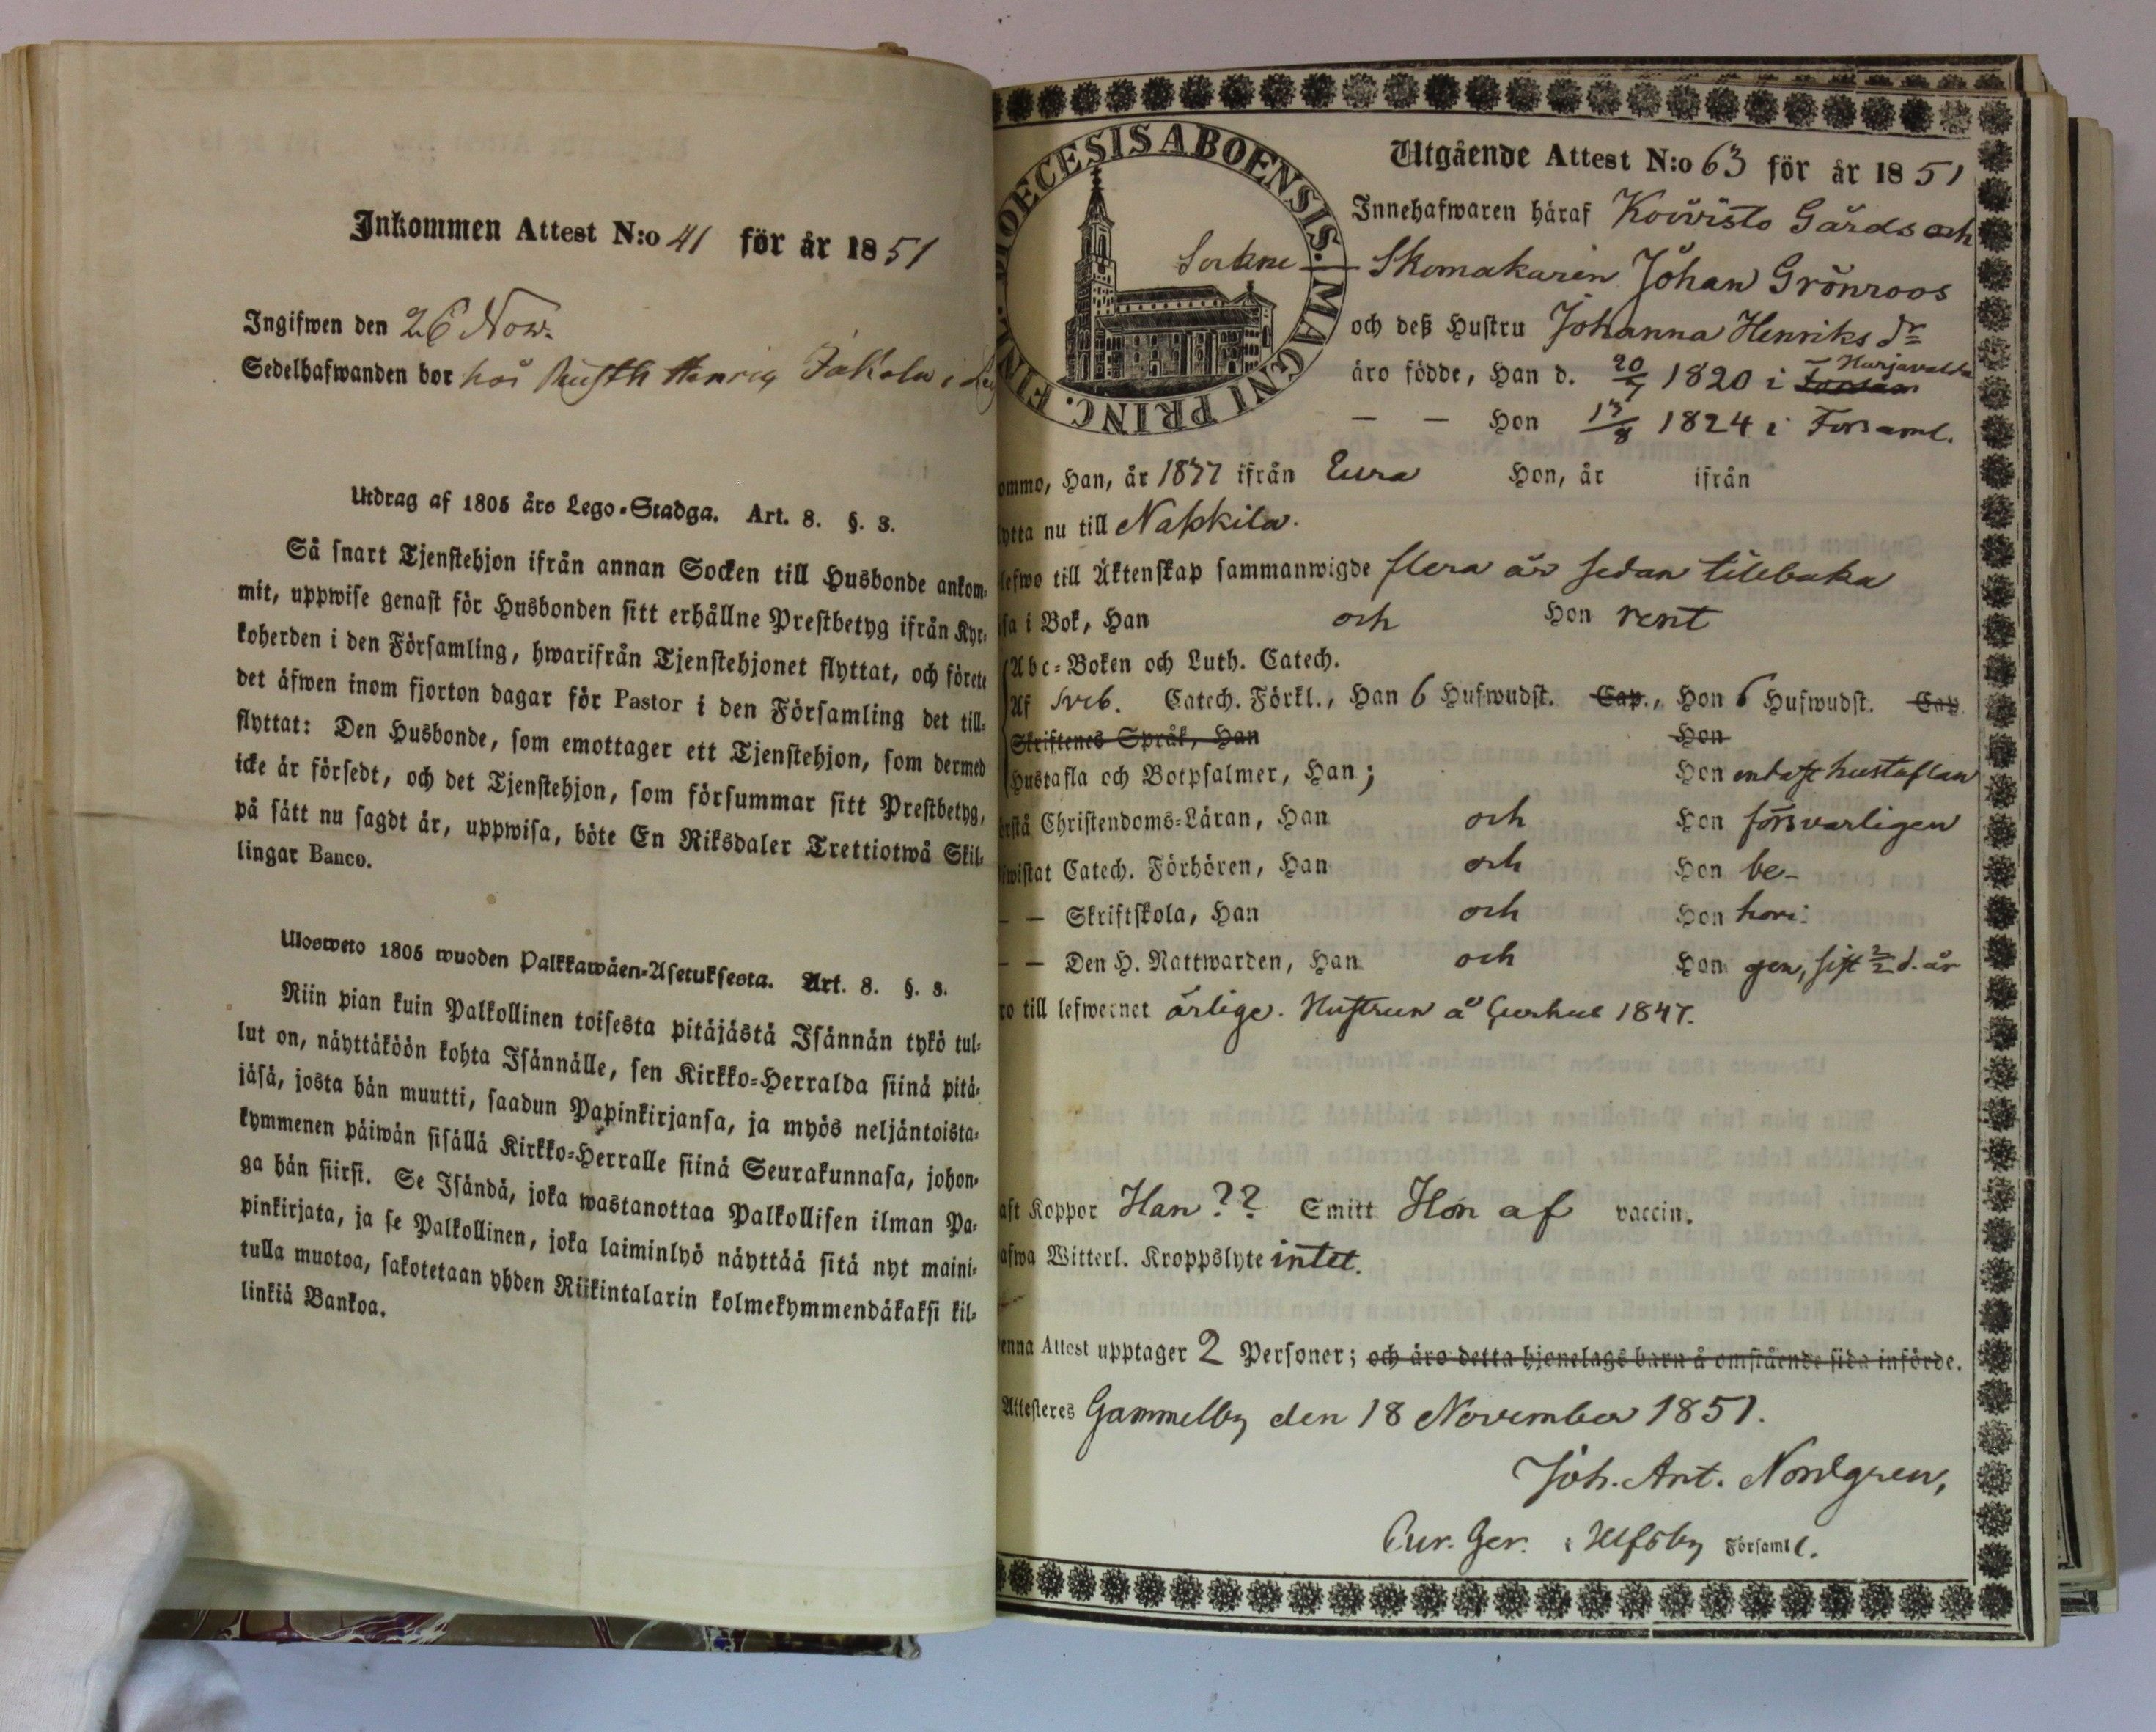 Inkommen Attest N:o 41 för år 1851
Ingifwen den 26 Nov.
Sedelhafwanden bor hos Rusth Henric Jakola i
Utdrag af 1805 års Lego-Stadga. Art. 8. §. 3.
Så snart Tjenstehjon ifrån annan Socken till Husbonde ankom-
mit, uppwise genast för Husbonden sitt erhållne Prestbetyg ifrån Kyr-
koherden i den Församling, hwarifrån Tjenstehjonet flyttat, och förete
det äfwen inom fjorton dagar för Pastor i den Församling det till-
flyttat: Den Husbonde, som emottager ett Tjenstehjon, som dermed
icke är försedt, och det Tjenstehjon, som försummar sitt Prestbetyg,
på sätt nu sagdt är, uppwisa, böte En Riksdaler Trettiotwå Skil-
lingar Banco.
Ulosweto 1805 wuoden Palkkawäen-Asetuksesta. Art. 8. §. 3.
Niin pian kuin Palkollinen toisesta pitäjästä Isännän tykö tul-
lut on, näyttäköön kohta Isännälle, sen Kirkko-Herralda siinä pitä-
jäsä, josta hän muutti, saadun Papinkirjansa, ja myös neljäntoista-
kymmenen päiwän sisällä Kirkko-Herralle siinä Seurakunnasa, johon-
ga hän siirsi. Se Isändä, joka wastanottaa Palkollisen ilman Pa-
pinkirjata, ja se Palkollinen, joka laiminlyö näyttää sitä nyt maini-
tulla muotoa, sakotetaan yhden Riikintalarin kolmekymmendäkaksi kil-
linkiä Bankoa.
DIOECESIS ABOENSIS. MAGNI PRINC. FINL.
Utgående Attest N:o 63 för år 1851
Innehafwaren häraf Koivisto Gårds och
Sockne Skomakaren Johan Grönroos
och deß Hustru Johanna Henriks dr
äro födde, Han d. 20/7 1820 i Harjavalda
— — Hon 13/8 1824 i Forsaml.
ommo, Han, år 1837 ifrån Eura Hon, år ifrån
lytta nu till Nakkila.
lefwo till Äktenskap sammanwigde flera år sedan tillbaka
sa i Bok, Han och Hon rent
Abc-Boken och Luth. Catech.
Af Sveb. Catech. Förkl., Han 6 Hufwudst. Cap., Hon 6 Hufwudst. Cap
Skriftenes Språk, Han Hon
Hustafla och Botpsalmer, Han; Hon endast hustaflan
rstå Christendoms-Läran, Han och Hon försvarligen
wistat Catech. Förhören, Han och Hon be-
— — Skriftskola, Han och Hon hori-
— — Den H. Nattwarden, Han och Hon gen, sist 2/2 d. år
ro till lefwernet ärlige. Hustrun å 1847.
aft Koppor Han ?? Smitt Hon af vaccin.
afwa Witterl. Kroppslyte intet.
enna Attest upptager 2 Personer; och äro detta hjonelags barn å omstående sida införde.
Attesteres Gammelby den 18 November 1851.
Joh. Ant. Nordgren,
Cur. Ger. i Ulfsby Församl.